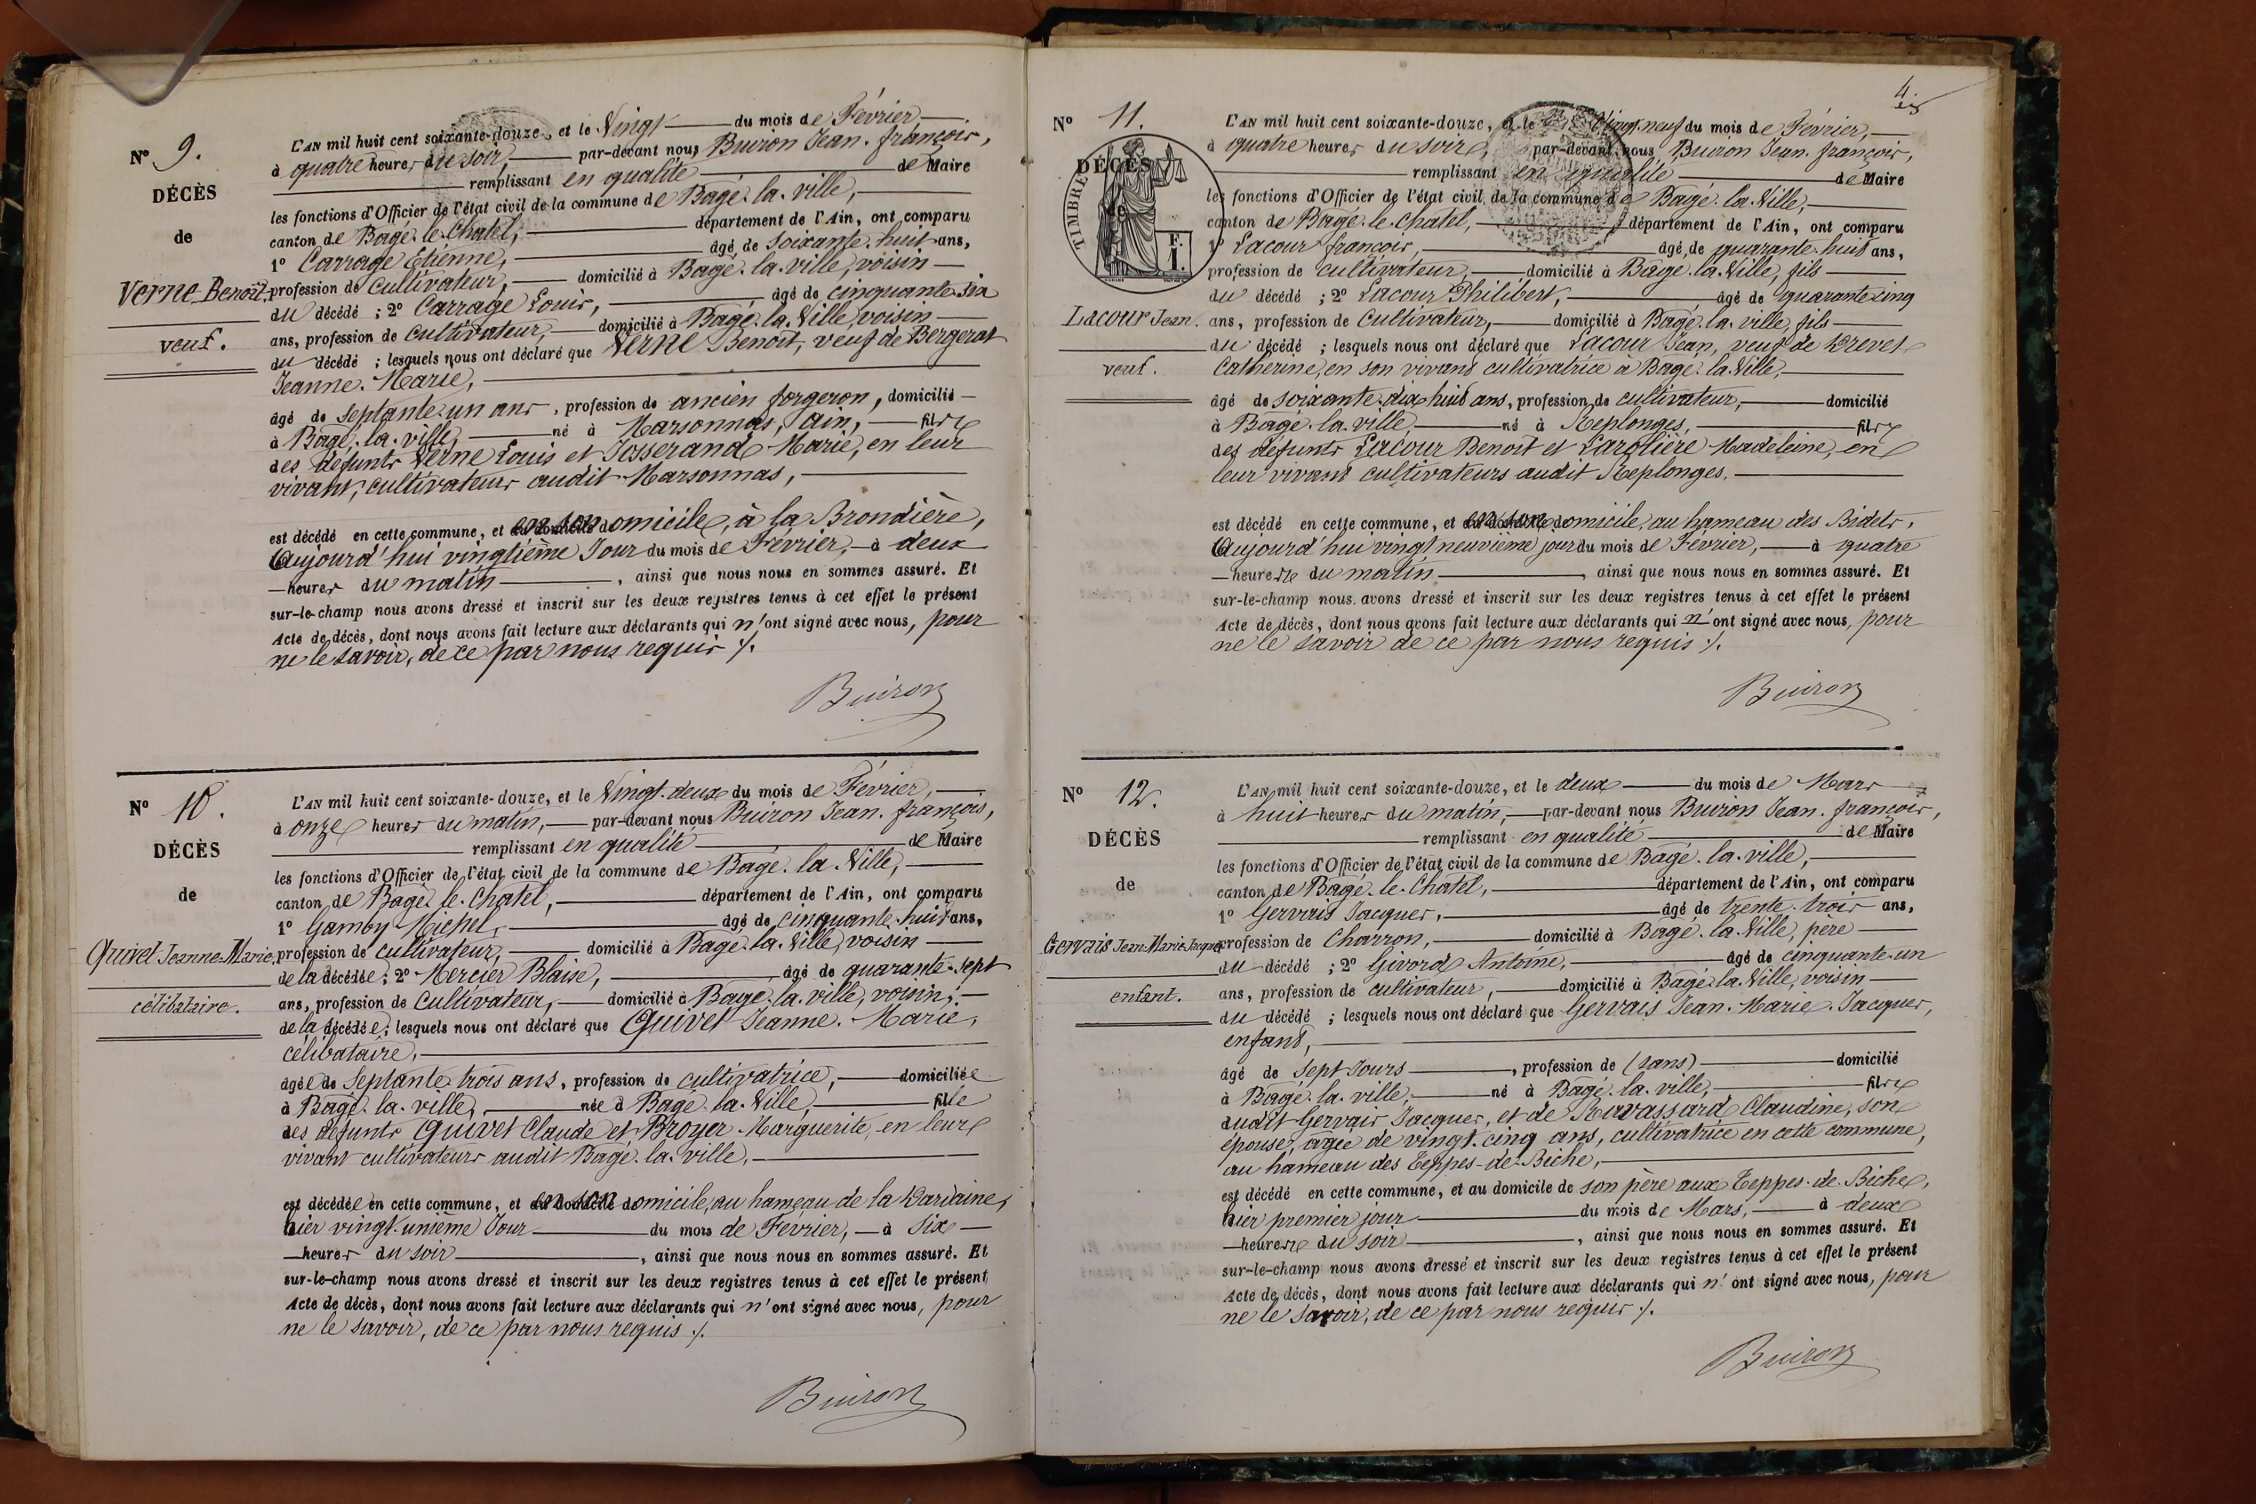 Nº 9.
DÉCÈS
de
Verne Benoît,
veuf.
L'AN mil huit cent soixante-douze, et le Vingt du mois de Février,
à quatre heures du soir, par-devant nous Buiron Jean-françois,
remplissant en qualité de Maire
les fonctions d'Officier de l'état civil de la commune de Bagé-la-ville,
canton de Bagé-le-Chatel, département de l'Ain, ont comparu
1º Carrage Étienne, âgé de soixante-huit ans,
profession de cultivateur, domicilié à Bagé-la-ville, voisin
du décédé ; 2º Carrage Louis, âgé de cinquante-six
ans, profession de cultivateur, domicilié à Bagé-la-Ville, voisin
du décédé ; lesquels nous ont déclaré que Verne Benoît, veuf de Bergerat
Jeanne-Marie,
âgé de septante-un ans, profession de ancien forgeron, domicilié
à Bagé-la-ville, né à Marsonnas, ain, fils
des défunts Verne Louis et Josserand Marie, en leur
vivant, cultivateurs audit Marsonnas,
est décédé en cette commune, et en son domicile, à la Brondière,
Aujourd'hui vingtième Jour du mois de Février, à deux
heures du matin, ainsi que nous nous en sommes assuré. Et
sur-le-champ nous avons dressé et inscrit sur les deux registres tenus à cet effet le présent
Acte de décès, dont nous avons fait lecture aux déclarants qui n'ont signé avec nous, pour
ne le savoir, de ce par nous requis ./.
Buiron
Nº 10.
DÉCÈS
de
Quivet Jeanne-Marie,
célibataire.
L'AN mil huit cent soixante-douze, et le Vingt-deux du mois de Février,
à onze heures du matin, par-devant nous Buiron Jean-françois,
remplissant en qualité de Maire
les fonctions d'Officier de l'état civil de la commune de Bagé-la-Ville,
canton de Bagé-le-Chatel, département de l'Ain, ont comparu
1º Gamby Michel, âgé de cinquante-huit ans,
profession de cultivateur, domicilié à Bagé-la-Ville, voisin
de la décédée ; 2º Mercier Blaise, âgé de quarante-sept
ans, profession de cultivateur, domicilié à Bagé-la-ville, voisin,
de la décédée ; lesquels nous ont déclaré que Quivet Jeanne-Marie,
célibataire,
âgée de Septante-trois ans, profession de cultivatrice, domiciliée
à Bagé-la-ville, née à Bagé-la-Ville, fille
des défunts Quivet Claude et Broyer Marguerite, en leur
vivant cultivateurs audit Bagé-la-ville,
est décédée en cette commune, et en son domicile, au hameau de la
hier vingt-unième Jour du mois de Février, à six
heures du soir, ainsi que nous nous en sommes assuré. Et
sur-le-champ nous avons dressé et inscrit sur les deux registres tenus à cet effet le présent
Acte de décès, dont nous avons fait lecture aux déclarants qui n'ont signé avec nous, pour
ne le savoir, de ce par nous requis ./.
Buiron
4
Nº 11.
DÉCÈS
de
TIMBRE
Lacour Jean.
veuf.
L'AN mil huit cent soixante-douze, et le Vingt-neuf du mois de Février,
à quatre heures du soir, par-devant nous Buiron Jean-françois,
remplissant en qualité de Maire
les fonctions d'Officier de l'état civil de la commune de Bagé-la-Ville,
canton de Bagé-le-Chatel, département de l'Ain, ont comparu
1º Lacour françois, âgé de quarante-huit ans,
profession de cultivateur, domicilié à Bagé-la-Ville, fils
du décédé ; 2º Lacour Philibert, âgé de quarante-cinq
ans, profession de cultivateur, domicilié à Bagé-la-ville, fils
du décédé ; lesquels nous ont déclaré que Lacour Jean, veuf de Drevet
Catherine, en son vivant cultivatrice à Bagé-la-Ville,
âgé de soixante-dix-huit ans, profession de cultivateur, domicilié
à Bagé-la-ville, né à Replonges, fils
des défunts Lacour Benoit et Larolière Madeleine, en
leur vivant cultivateurs audit Replonges,
est décédé en cette commune, et en son domicile, au hameau des Bidets,
Aujourd'hui vingt-neuvième jour du mois de Février, à quatre
heures du matin, ainsi que nous nous en sommes assuré. Et
sur-le-champ nous avons dressé et inscrit sur les deux registres tenus à cet effet le présent
Acte de décès, dont nous avons fait lecture aux déclarants qui n'ont signé avec nous, pour
ne le savoir de ce par nous requis ./.
Buiron
Nº 12.
DÉCÈS
de
Gervais Jean-Marie-Jacques
enfant.
L'AN mil huit cent soixante-douze, et le deux du mois de Mars
à huit heures du matin, par-devant nous Buiron Jean-françois,
remplissant en qualité de Maire
les fonctions d'Officier de l'état civil de la commune de Bagé-la-ville,
canton de Bagé-le-Chatel, département de l'Ain, ont comparu
1º Gervais Jacques, âgé de trente-trois ans,
profession de Charron, domicilié à Bagé-la-Ville, père
du décédé ; 2º Givord Antoine, âgé de cinquante-un
ans, profession de cultivateur, domicilié à Bagé-la-Ville, voisin
du décédé ; lesquels nous ont déclaré que Gervais Jean-Marie-Jacques,
enfant,
âgé de sept Jours, profession de (sans) domicilié
à Bagé-la-ville, né à Bagé-la-ville, fils
dudit Gervais Jacques, et de Ravassard Claudine, son
épouse, agée de vingt-cinq ans, cultivatrice en cette commune,
au hameau des Teppes-de-Biche,
est décédé en cette commune, et au domicile de son père aux Teppes-de-Biche,
hier premier jour du mois de Mars, à deux
heures du soir, ainsi que nous nous en sommes assuré. Et
sur-le-champ nous avons dressé et inscrit sur les deux registres tenus à cet effet le présent
Acte de décès, dont nous avons fait lecture aux déclarants qui n'ont signé avec nous, pour
ne le savoir, de ce par nous requis ./.
Buiron